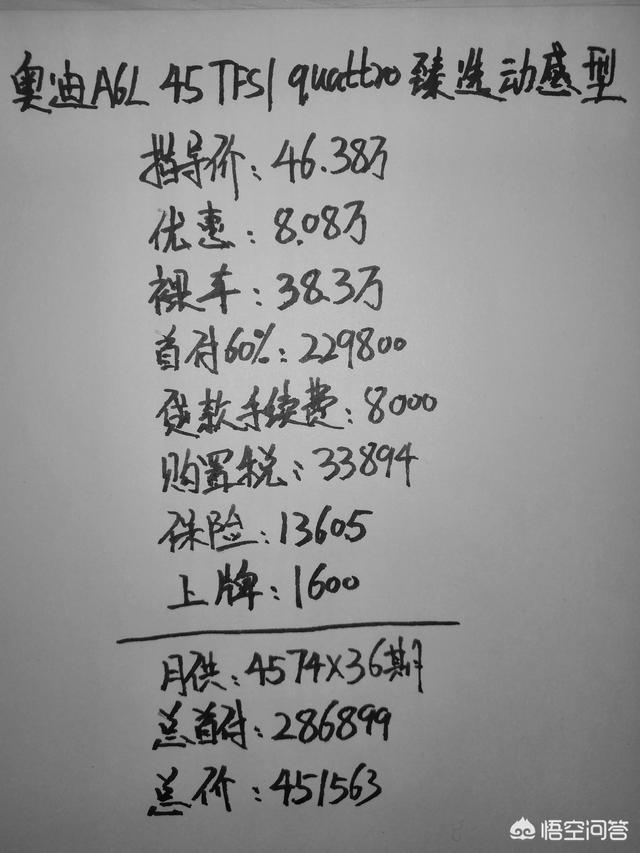 奥迪A6L 45TFSI quattro臻选动感型
指导价：46.38万
优惠：8.08万
裸车：38.3万
首付60%：229800
贷款手续费：8000
购置税：33894
保险：13605
上牌：1600
月供：4574×36期
总首付：286899
总价：451563
悟空问答